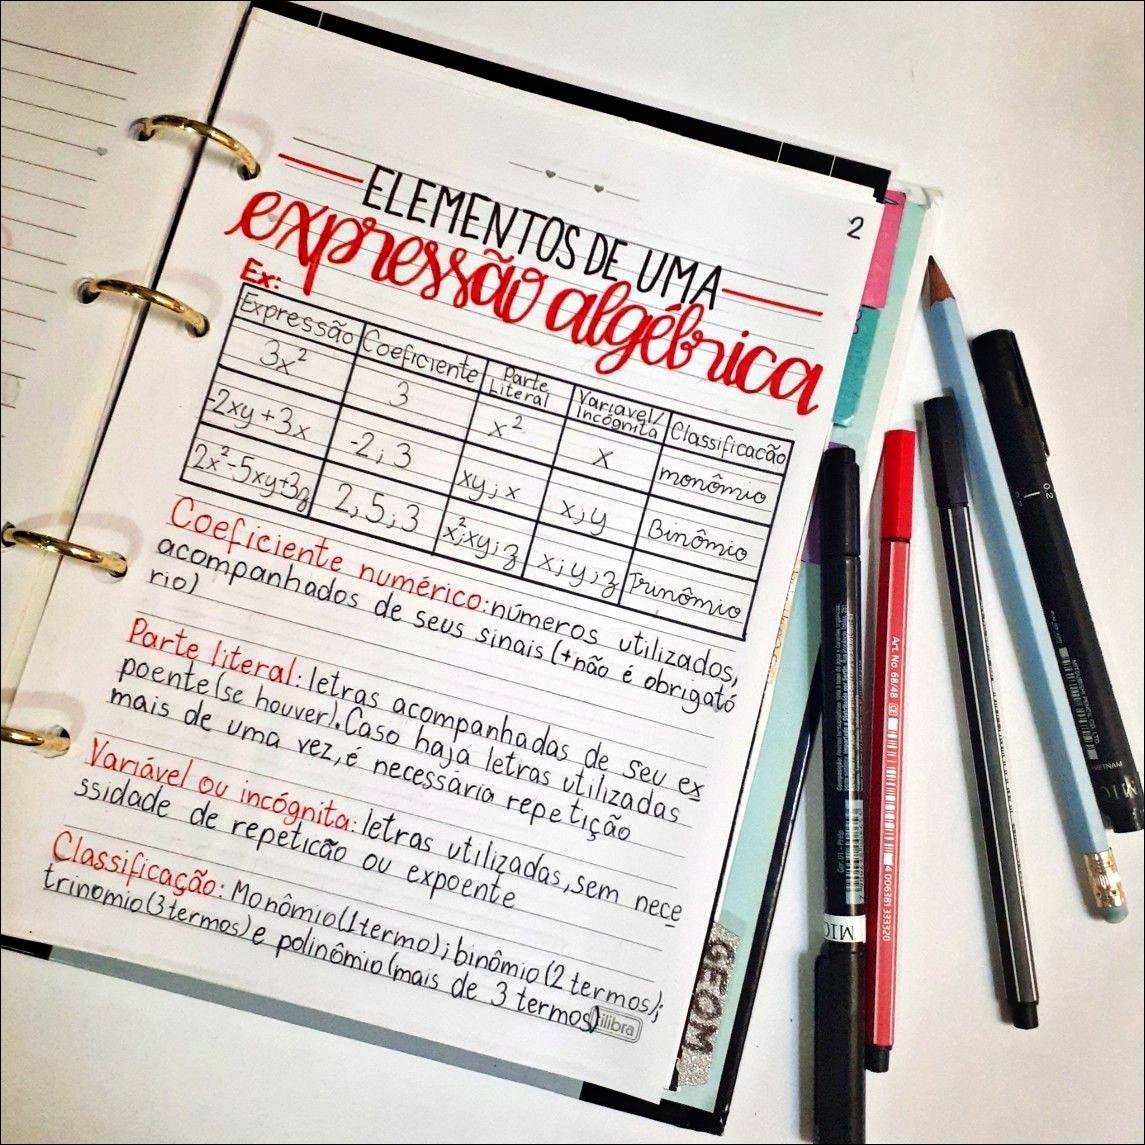 2
ELEMENTOS DE UMA
expressão algébrica
Ex:
Expressão Coeficiente Parte Literal Variavel/ Incógnita Classificacão
3x² 3 x² x monômio
-2xy + 3x -2; 3 xy; x x; y Binômio
2x²-5xy+3z 2; 5; 3 x²; xy; z x; y; z Trinômio
Coeficiente numérico: números utilizados,
acompanhados de seus sinais (+não é obrigató
rio)
Parte literal: letras acompanhadas de seu ex
poente (se houver). Caso haja letras utilizadas
mais de uma vez, é necessária repetição
Variável ou incógnita: letras utilizadas, sem nece
ssidade de repeticão ou expoente
Classificação: Monômio (1 termo); binômio (2 termos);
trinomio (3 termos) e polinômio (mais de 3 termos)
tilibra
GEOM
Art. No. 68/48
4 006381 333320
0.2
VIETNAM
MIC